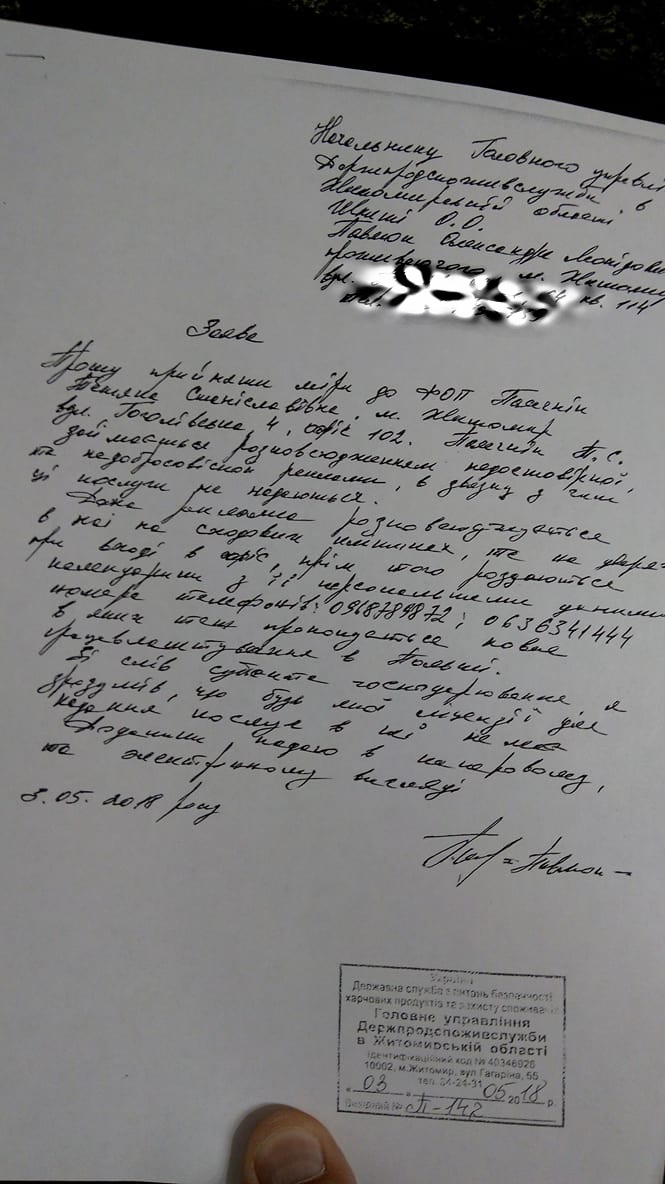 Начальнику Головного управлі
Держпродспоживслужби в
Житомирській області
О.О.
Павлюк Олександра Леонідови
проживаючого м. Житомир
вул. 64 кв. 114
тел.
Заява
Прошу прийняти міри до ФОП
Тетяна Станіславівна, м. Житомир
вул. Гоголівська 4, офіс 102. П.С.
займається розповсюдженням недостовірної,
та недобросовісної реклами, в звязку з чим
ці послуги не надаються.
Дана реклама розповсюджується
в на сходових та на дверях
при вході в офіс, крім того роздаються
календарики з її персональними даними
номера телефонів: 0968789872; 0636341444
в яких теж пропонується
працевлаштування в Польщі.
Зі слів субєкта господарювання я
зрозумів, що будь якої ліцензії для
надання послуг в неї нема
надаю в паперовому,
та електронному вигляді
3.05.2018 року
Павлюк
Україна
Державна служба з питань безпечності
харчових продуктів та захисту споживачів
Головне управління
Держпродспоживслужби
в Житомирській області
Ідентифікаційний код № 40346926
10002, м.Житомир, вул Гагаріна, 55
тел. 34-24-31
« 03 » 05 2018 р.
Вхідний № П-142